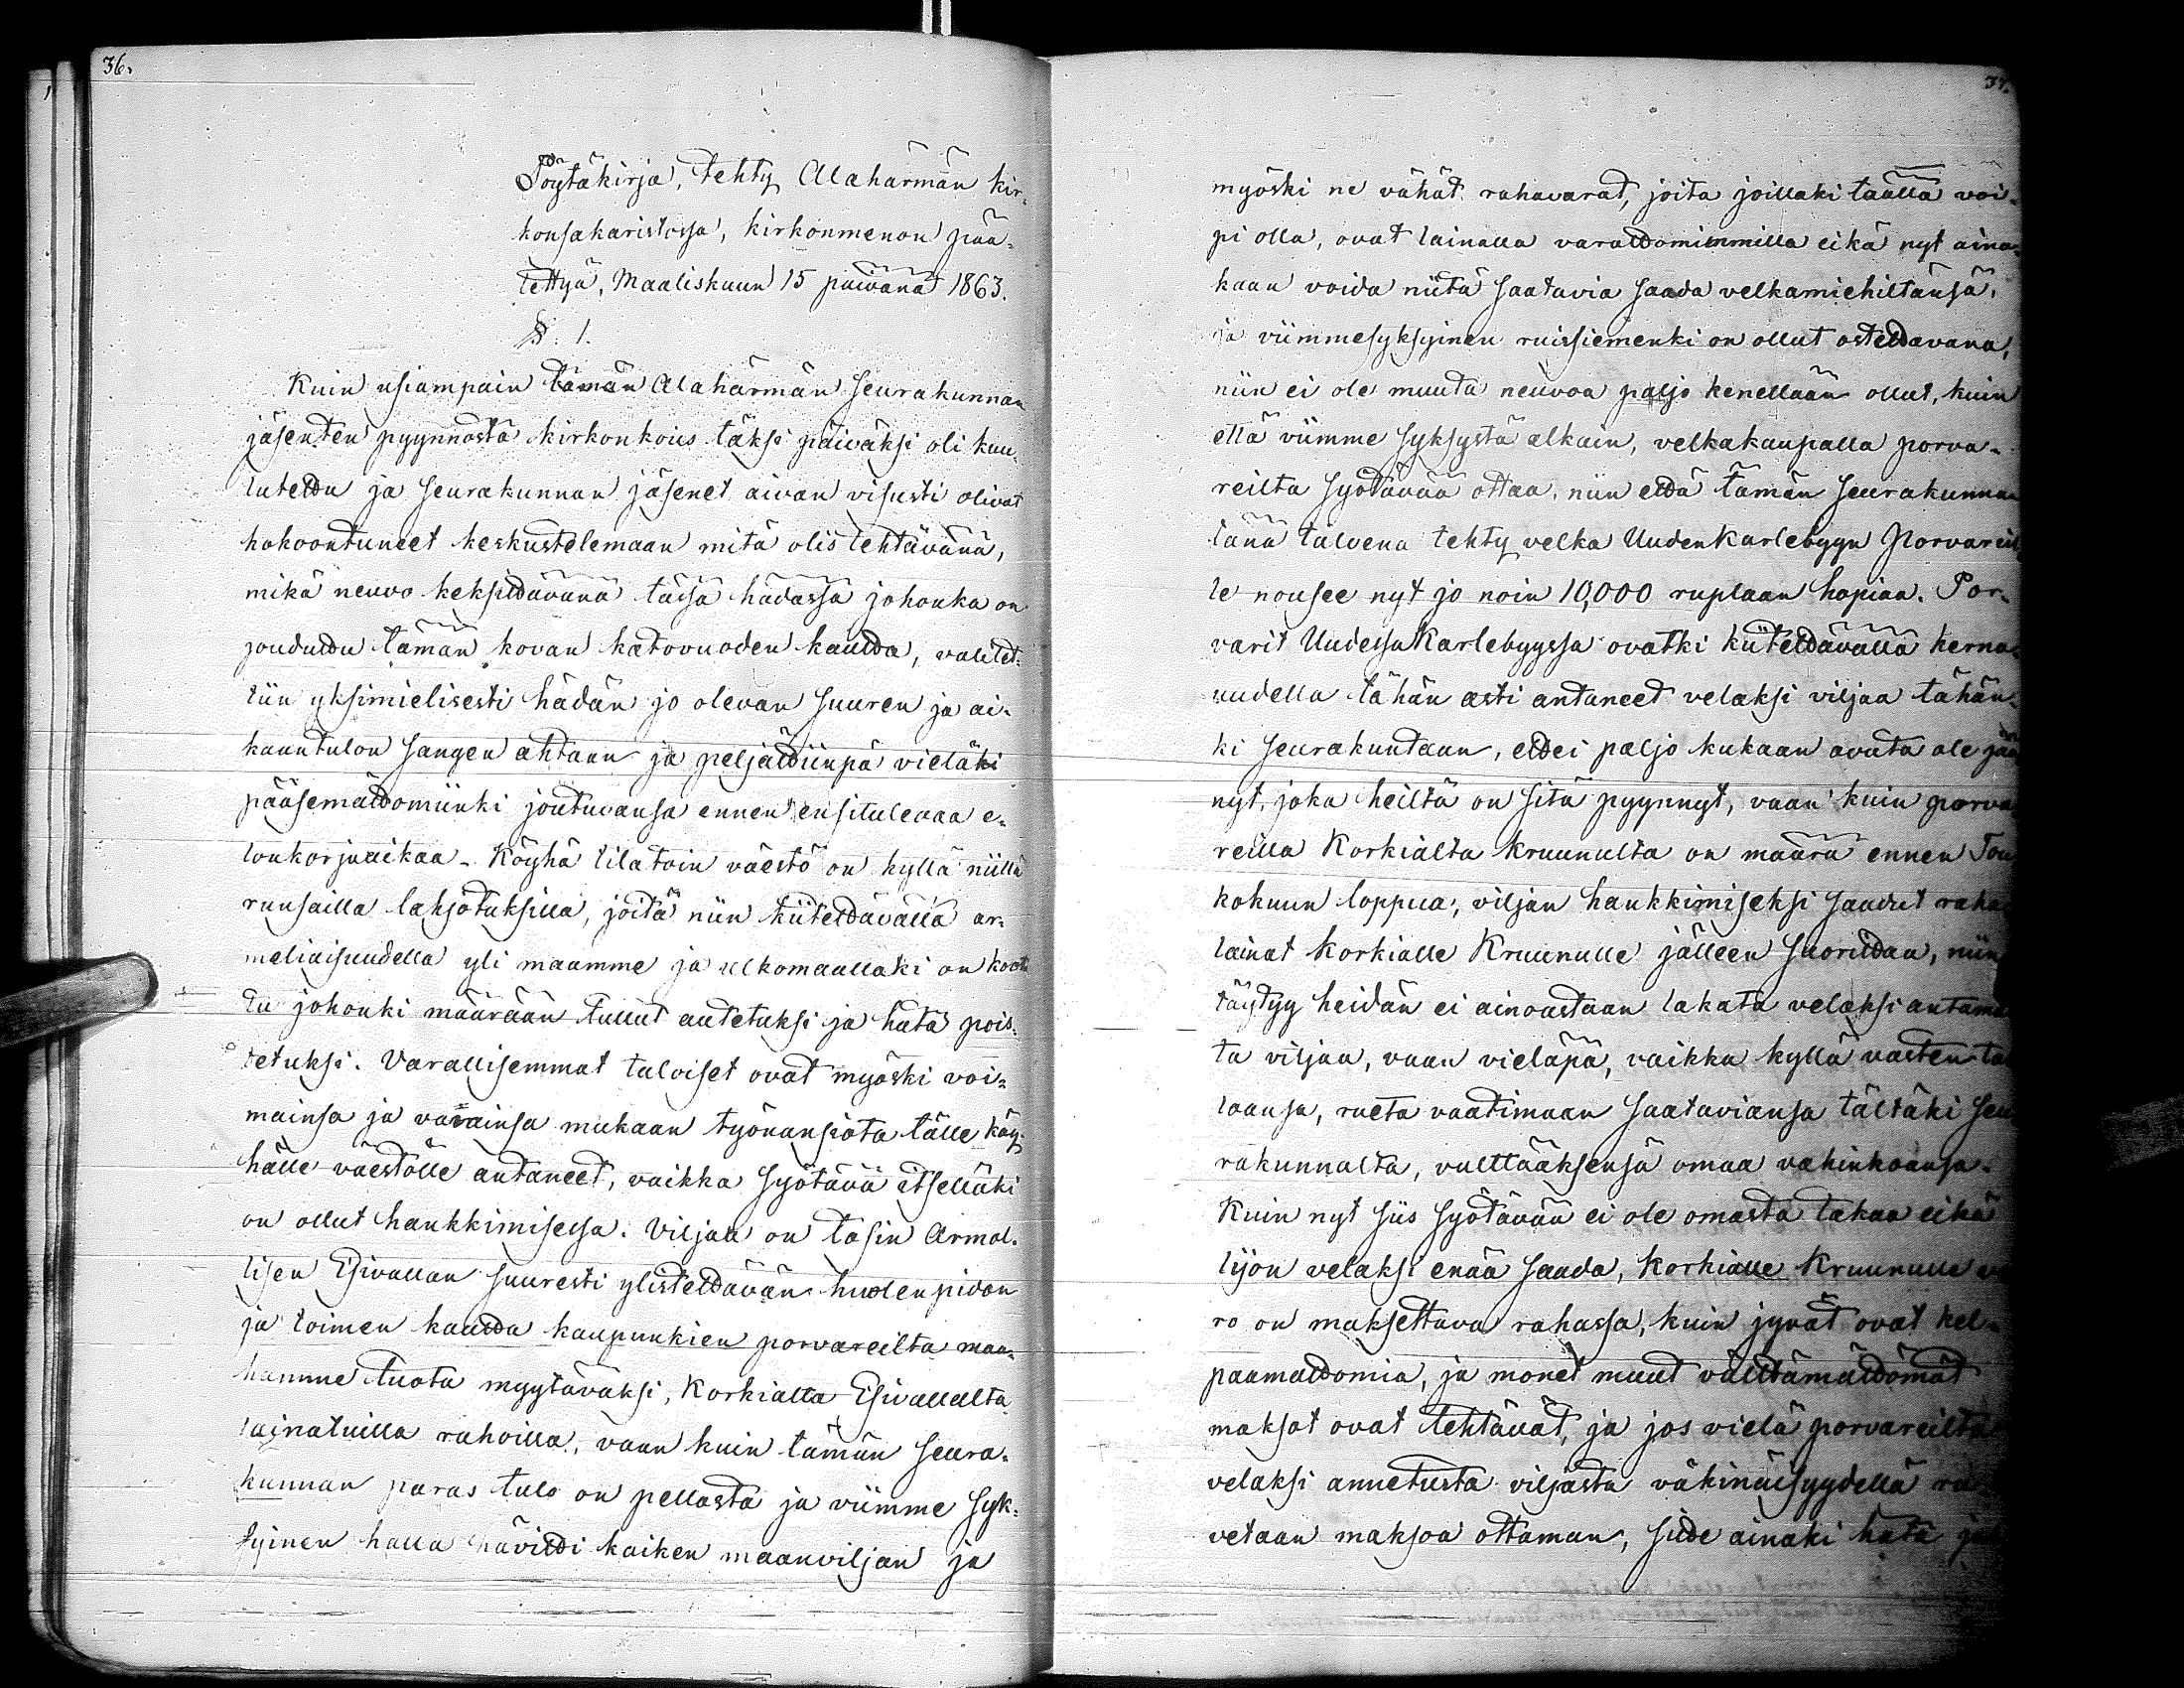 36.
Pöytäkirja, tehty Alahärmän kir-
konsakaristossa, kirkonmenon pää-
tettyä, Maaliskuun 15 päivänä 1863.
§. 1.
Kuin usiampain tämän Alahärmän Seurakunnan
jäsenten pyynnöstä kirkonkous täksi päiväksi oli kuu-
lutettu ja Seurakunnan jäsenet aivan visusti olivat
kokoontuneet keskustelemaan mitä olis tehtävänä,
mikä neuvo keksittävänä täsä hädässä johonka on
jouduttu tämän kovan katovuoden kautta, valitet-
tiin yksimielisesti hädän jo olevan suuren ja ai-
kaantulon sangen ahtaan ja peljättiinpä vieläki
pääsemättömiinki joutuvansa ennen ensitulevaa e-
lonkorjuaikaa. Köyhä tilatoin väestö on kyllä niillä
runsailla lahjotuksilla, joita niin kiitettävällä ar-
meliaisuudella yli maamme ja ulkomaallaki on koot-
tu johonki määrään tullut autetuksi ja hätä pois-
tetuksi. Varallisemmat taloiset ovat myöski voi-
mainsa ja varainsa mukaan työnansiota tälle köy-
hälle väestölle antaneet, vaikka syötävä itselläki
on ollut hankkimisessa. Viljaa on tosin Armol-
lisen Esivallan suuresti ylistettävän huolenpidon
ja toimen kautta kaupunkien porvareilta maa-
hamme tuotu myytäväksi, Korkialta Esivallalta
lainatuilla rahoilla, vaan kuin tämän Seura-
kunnan paras tulo on pellosta ja viimme syk-
syinen halla hävitti kaiken maanviljan ja
37.
myöski ne vähät rahavarat, joita joillaki täällä voi-
pi olla, ovat lainalla varattomimmilla eikä nyt aina-
kaan voida niitä saatavia saada velkamiehiltänsä,
ja viimmesyksyinen ruissiemenki on ollut ostettavana,
niin ei ole muuta neuvoa paljo kenellään ollut, kuin
että viimme syksystä alkain, velkakaupalla porva-
reilta syötävää ottaa, niin että tämän Seurakunnan
tänä talvena tehty velka Uudenkarlebyyn Porvareil-
le nousee nyt jo noin 10,000 ruplaan hopiaa. Por-
varit Uudessa Karlebyyssa ovatki kiitettävällä kerna-
uudella tähän asti antaneet velaksi viljaa tähän-
ki Seurakuntaan, ettei paljo kukaan avuta ole jää
nyt, joka heiltä on sitä pyynnyt, vaan kuin porva
reilla Korkialta Kruunulta on määrä ennen Tou
kokuun loppua, viljan hankkimiseksi saadut raha
lainat Korkialle Kruunulle jälleen suorittaa, niin
täytyy heidän ei ainoastaan lakata velaksi antama
ta viljaa, vaan vieläpä, vaikka kyllä vasten ta
toansa, rueta vaatimaan saataviansa tältäki Seu
rakunnalta, välttääksensä omaa vahinkoansa.
Kuin nyt siis syötävää ei ole omasta takaa eikä
lijon velaksi enää saada, Korkialle Kruunulle ve
ro on maksettava rahassa, kuin jyvät ovat kel-
paamattomia, ja monet muut välttämättömät
maksot ovat tehtävät, ja jos vielä porvareilta
velaksi annetusta viljasta väkinäisyydellä ru
vetaan maksoa ottaman, sitte ainaki hätä